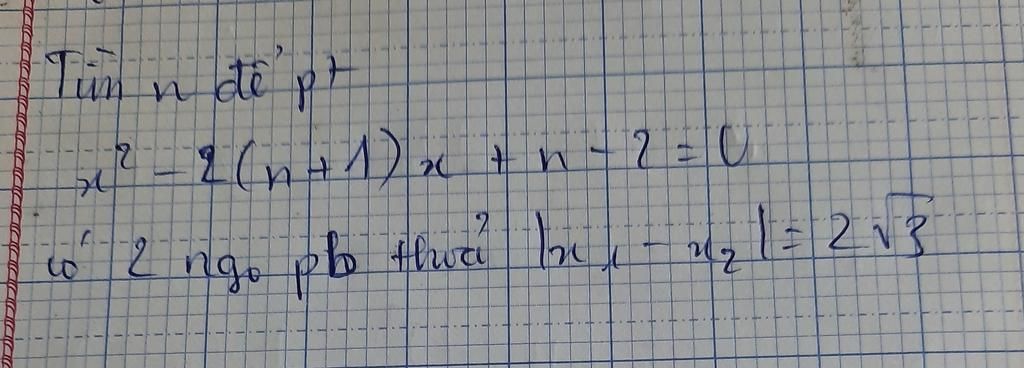 Tìm n để pt
x² - 2(n+1)x + n - 2 = 0
có 2 ngo pb thoả |x₁ - x₂| = 2√3